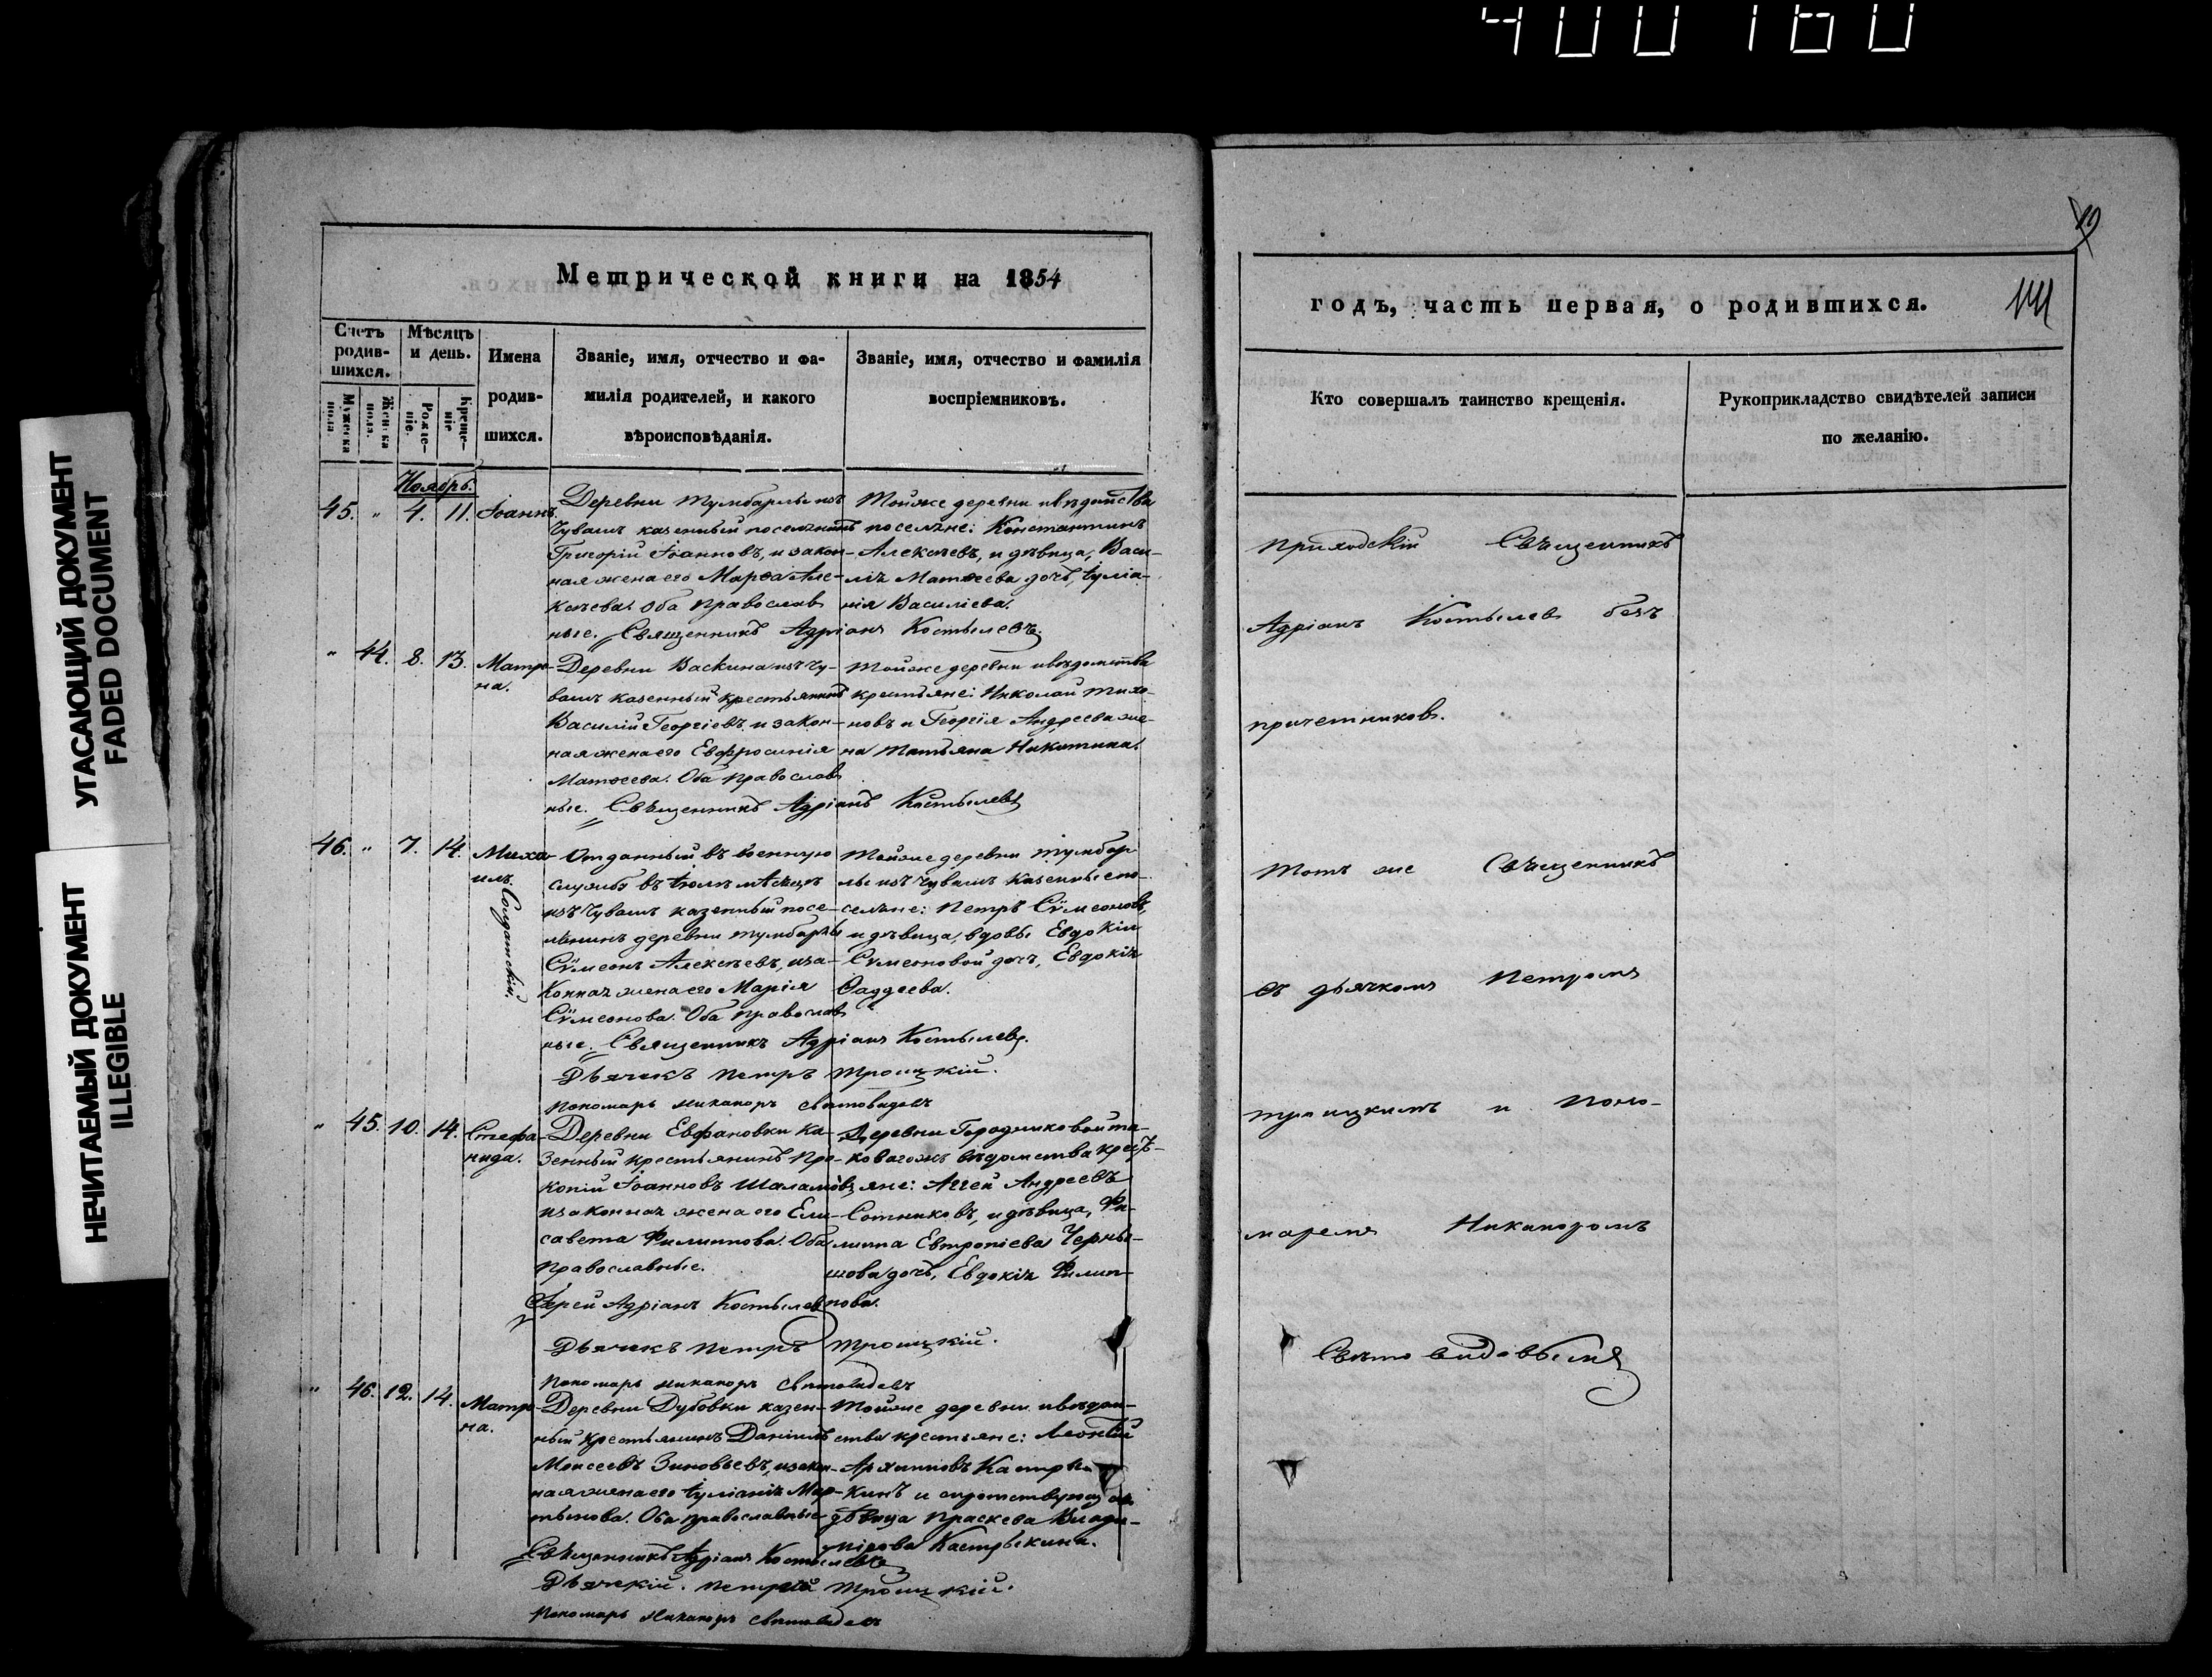 400160
УГАСАЮЩИЙ ДОКУМЕНТ
FADED DOCUMENT
НЕЧИТАЕМЫЙ ДОКУМЕНТ
ILLEGIBLE
Метрической книги на 1854
Счетъ родив-шихся.
Мѣсяцъ и день.
Имена родив-шихся.
Званіе, имя, отчество и фа-
милія родителей, и какого
вѣроисповѣданія.
Званіе, имя, отчество и фамилія
воспріемниковъ.
Мужеска пола.
Женска пола.
Рожде-ніе.
Креще-ніе
Ноябрь.
45. " 4. 11. Іоаннъ.
Деревни Тумбарлы изъ
Чувашъ казенный поселянинъ
Григорій Іоанновъ, и закон-
ная жена его Марѳа Але-
ксѣева. Оба православ
ные. Священникъ Адріанъ Костылевъ.
Тойже деревни и вѣдомства
поселяне: Константинъ
Алексѣевъ, и дѣвица, Васи-
лія Матѳеева дочь, Іуліа-
нія Василіева.
" 44. 8. 13. Матро-
на.
Деревни Васкина изъ Чу-
вашъ казенный крестьянинъ
Василій Георгіевъ, и закон-
ная жена его Евфросинія
Матѳеева. Оба православ
ные. Священникъ Адріанъ Костылевъ
Тойже деревни и вѣдомства
крестьяне: Николай Тихо-
новъ и Георгія Андреева же-
на Татьяна Никитина.
46. " 7. 14. Миха-
илъ.
Солдатскій.
Отданный въ военную
службу въ Іюлѣ мѣсяцѣ
изъ Чувашъ казенный посе-
лянинъ деревни Тумбарлы
Сѵмеонъ Алексѣевъ, и за-
конная жена его Марія
Сѵмеонова. Оба православ
ные. Священникъ Адріанъ Костылевъ.
Дьячекъ Петръ Троицкій.
Пономарь Никаноръ Святовидовъ
Тойже деревни Тумбар
лы изъ Чувашъ казенные по-
селяне: Петръ Сѵмеоновъ,
и дѣвица, вдовы Евдокіи
Сѵмеоновой дочь, Евдокія
Ѳаддеева.
" 45. 10. 14. Стефа-
нида.
Деревни Евфановки ка-
зенный крестьянинъ Про-
копій Іоанновъ Шаламовъ
и законная жена его Ели-
савета Филиппова. Оба
православные.
Іерей Адріанъ Костылевъ
Дьячекъ Петръ Троицкій.
Пономарь Никаноръ Святовидовъ
Деревни Городчиковой та-
коваго жъ вѣдомства крест-
яне: Аггей Андреевъ
Сотниковъ, и дѣвица, Фи-
липпа Евтропіева Черны-
шова дочь, Евдокія Филип-
пова.
" 46. 12. 14. Матро-
на.
Деревни Дубовки казен-
ный крестьянинъ Даніилъ
Моисеевъ Зиновьевъ, и закон-
ная жена его Іуліанія Мар-
тынова. Оба православные
Священникъ Адріанъ Костылевъ
Дьячекъ Петръ Троицкій.
Пономарь Никаноръ Святовидовъ
Тойже деревни и вѣдом-
ства крестьяне: Леонтій
Архиповъ
дѣвица Праскева Влади-
мірова Кастрыкина.
19
годъ, часть первая, о родившихся.
141
Кто совершалъ таинство крещенія.
Рукоприкладство свидѣтелей записи
по желанію.
Приходскій Священникъ
Адріанъ Костылевъ безъ
причетниковъ.
Тотъ же Священникъ
съ дьячкомъ Петромъ
Троицкимъ и Поно-
маремъ Никаноромъ
Святовидовымъ